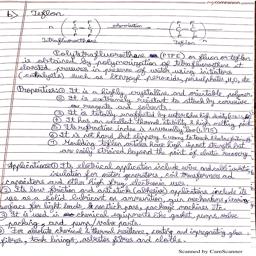 b) Teflon
n
polymerisation
Tetrafluoroethene
Teflon
Polytetrafluoroethene (PTFE) or fluon or teflon
is obtained by polymerization of tetrafluoroethene at
elevated pressure in presence of water using initiators
(catalysts) such as benzoyl peroxide, persulphate, H₂O₂ etc
Properties: ① It is a highly crystalline and orientable polymer
② It is extremely resistant to attack by corrosive
reagents and solvents.
③ It is totally unaffected by
④ It has an excellent thermal stability & high melting point
⑤ Its refractive index is unusually low
⑥ It is not hard but slippery & waxy to touch
⑦ Moulding teflon articles have high impact strength but
are easily strained beyond the point of elastic recovery
Applications: ① Its electrical application include wire and cable
insulation for motor generators, coil transformers and
capacitors and other high freq. electronic uses.
② Its low friction and antistick (adhesion) applications include its
use as a solid lubricant in ammunition, gun mechanisms,
③ It is used in chemical equipments like gasket, pumps, valve
packing, and pump/valve parts.
For absolute chemical & thermal resistance, coating and impregnating glass
fibres, tank linings, asbestos fibres and cloths.
Scanned by CamScanner